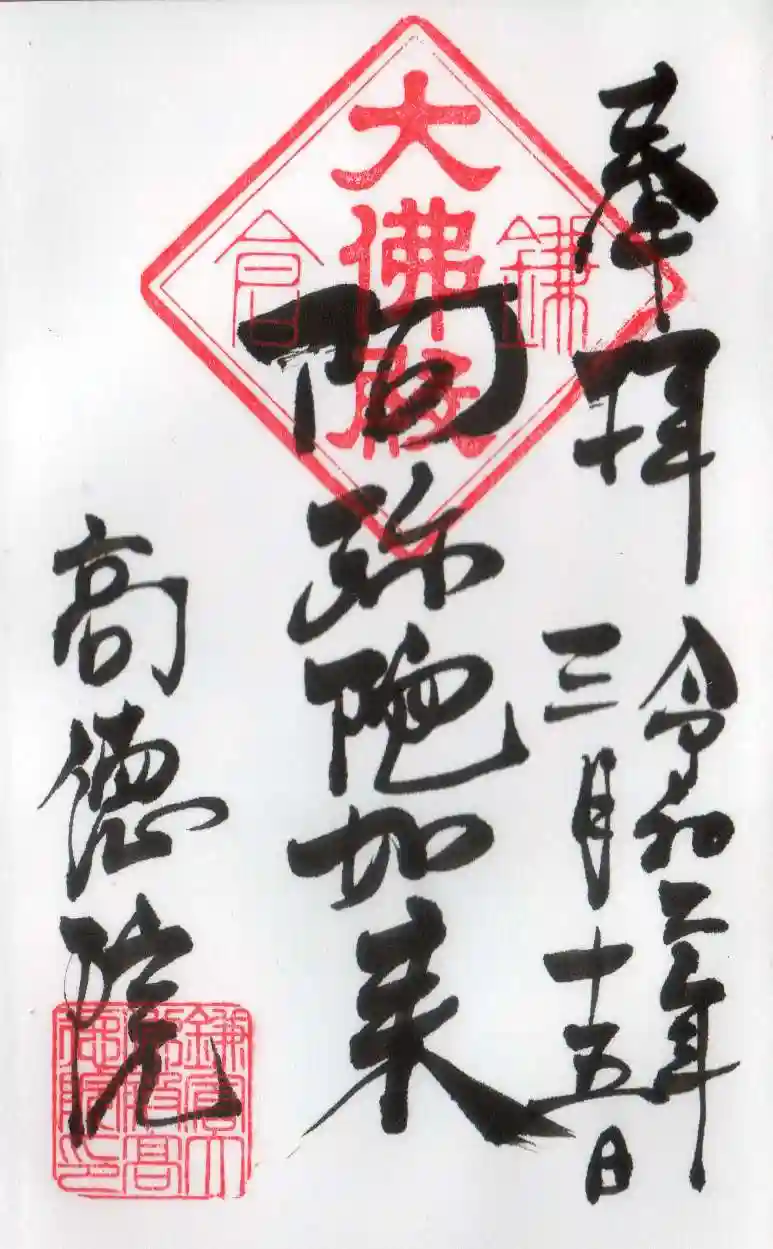 奉拝
令和二年
三月十五日
大佛殿
鎌倉
阿弥陀如来
高徳院
鎌倉大
佛殿高
徳院之印